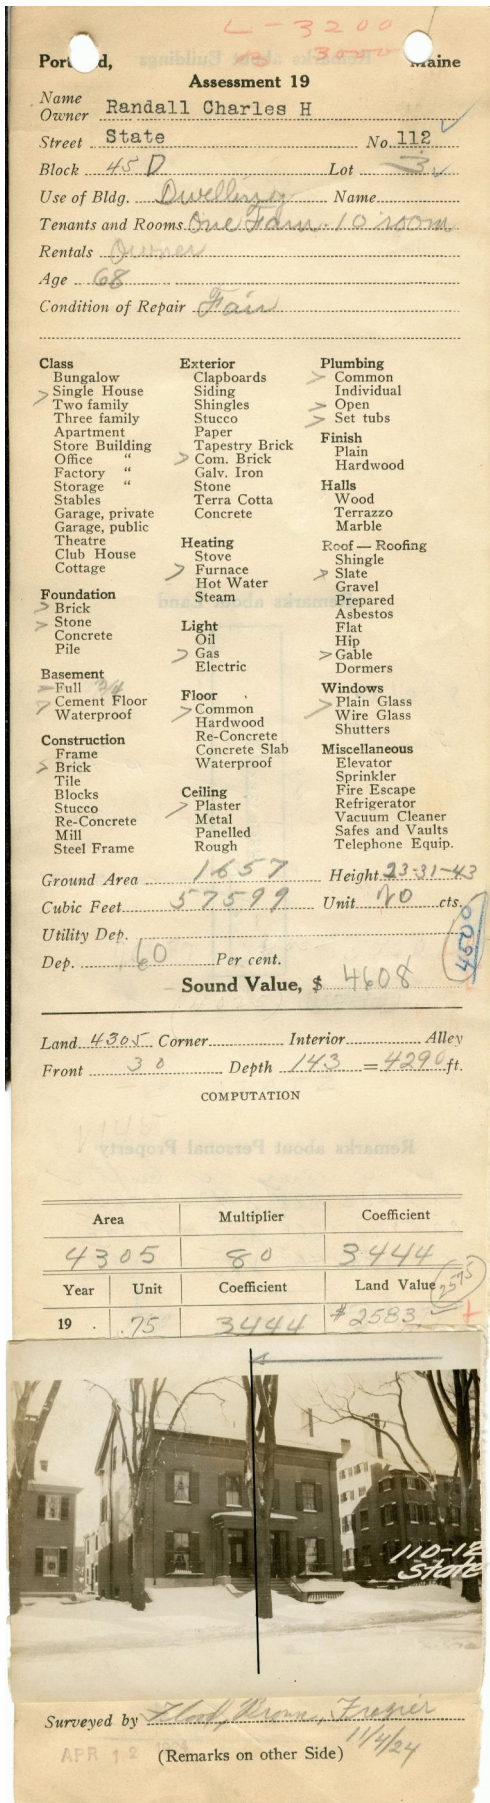 L - 3200
B 3000
Portland, Maine
Assessment 19
Name
Owner Randall Charles H
Street State No. 112
Block 45 D Lot 3
Use of Bldg. Dwelling Name
Tenants and Rooms One Fam. 10 room
Rentals Owner
Age 68
Condition of Repair Fair
Class
Bungalow
Single House
Two family
Three family
Apartment
Store Building
Office "
Factory "
Storage "
Stables
Garage, private
Garage, public
Theatre
Club House
Cottage
Foundation
Brick
Stone
Concrete
Pile
Basement
Full 3/4
Cement Floor
Waterproof
Construction
Frame
Brick
Tile
Blocks
Stucco
Re-Concrete
Mill
Steel Frame
Exterior
Clapboards
Siding
Shingles
Stucco
Paper
Tapestry Brick
Com. Brick
Galv. Iron
Stone
Terra Cotta
Concrete
Heating
Stove
Furnace
Hot Water
Steam
Light
Oil
Gas
Electric
Floor
Common
Hardwood
Re-Concrete
Concrete Slab
Waterproof
Ceiling
Plaster
Metal
Panelled
Rough
Plumbing
Common
Individual
Open
Set tubs
Finish
Plain
Hardwood
Halls
Wood
Terrazzo
Marble
Roof — Roofing
Shingle
Slate
Gravel
Prepared
Asbestos
Flat
Hip
Gable
Dormers
Windows
Plain Glass
Wire Glass
Shutters
Miscellaneous
Elevator
Sprinkler
Fire Escape
Refrigerator
Vacuum Cleaner
Safes and Vaults
Telephone Equip.
Ground Area 1657 Height 23-31-43
Cubic Feet 57599 Unit 20 cts.
Utility Dep.
4500
Dep. 60 Per cent.
Sound Value, $ 4608
Land 4305 Corner Interior Alley
Front 30 Depth 143 = 4290 ft.
COMPUTATION
Remarks about Personal Property
Area Multiplier Coefficient
4305 80 3444
Year Unit Coefficient Land Value 2575
19 .75 3444 $2583
110-12
State
Surveyed by Flood, Brown, Frazier
11/4/24
APR 12
(Remarks on other Side)